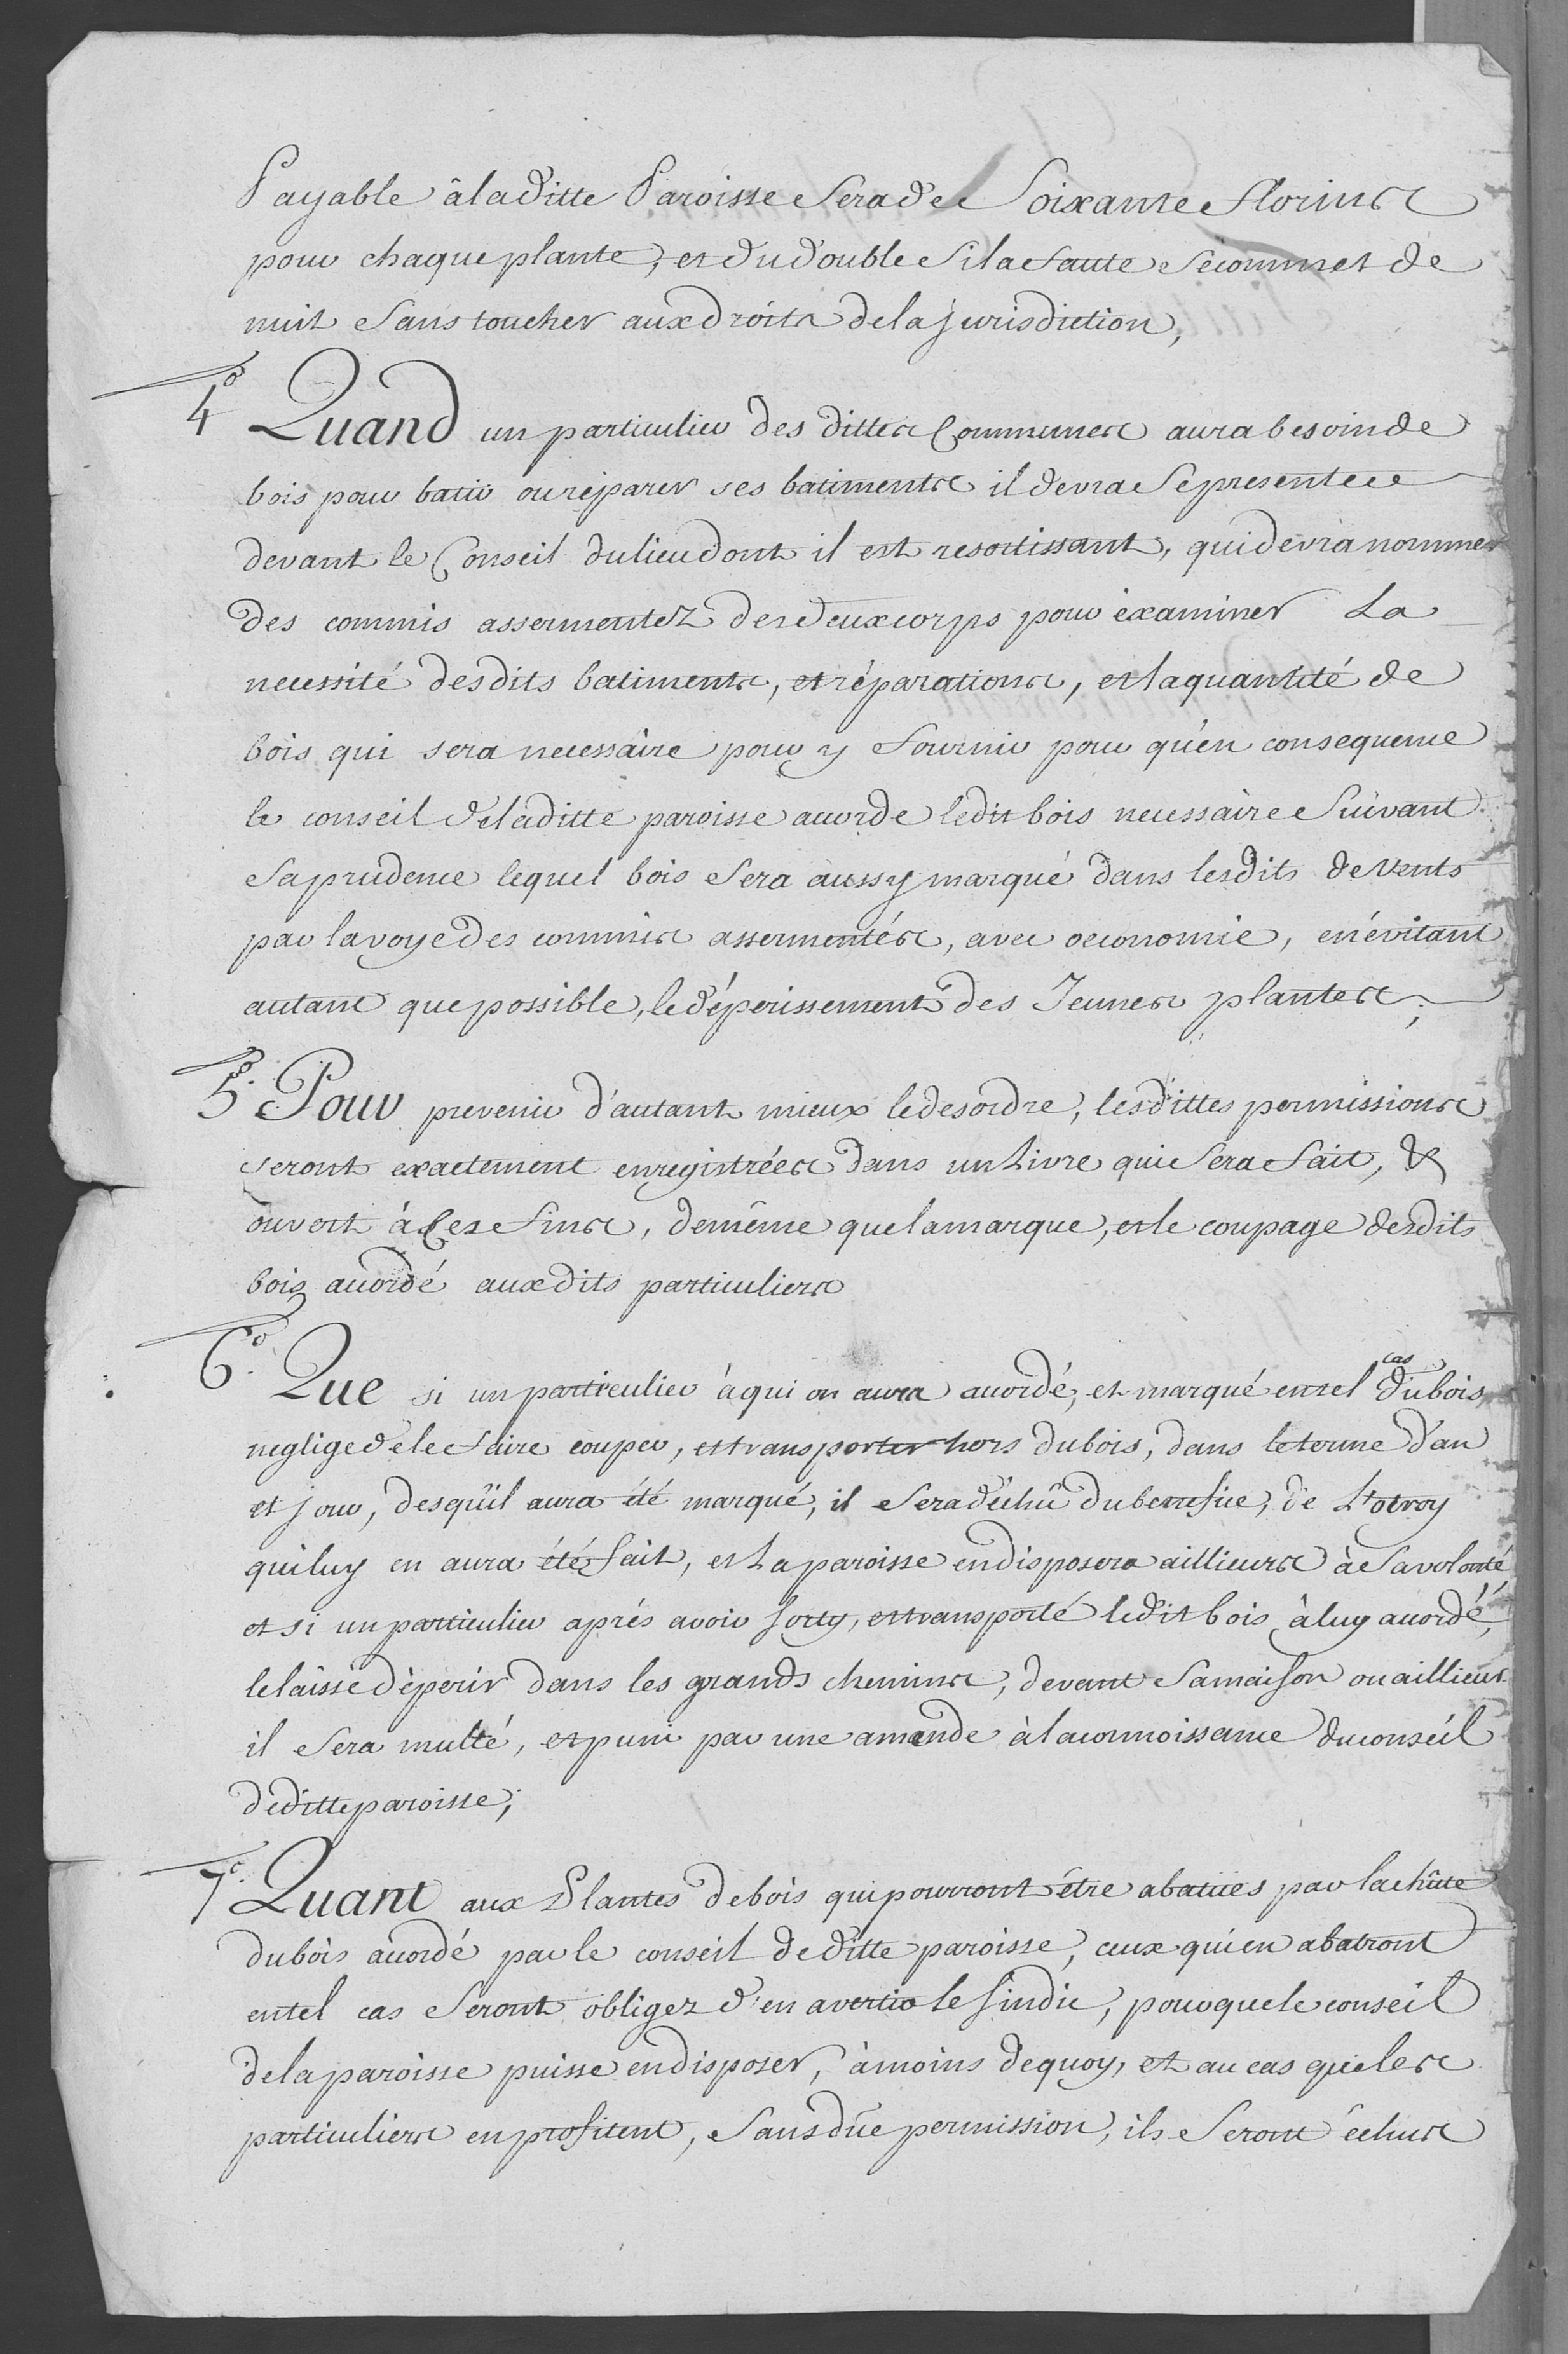 Payable à la ditte Paroisse Sera de Soixante Florins
pour chaque plante, et du double Si la faute Se commet de
nuit Sans toucher aux droits de la jurisdiction,
4.° Quand un particulier des dittes Communes aura besoin de
bois pour batir ou réparer ses batiments il devra Se presenter
devant le Conseil du lieu dont il est resortissant, qui devra nommer
des commis assermentez des deux corps pour examiner La
necessité desdits batiments, et réparations, et la quantité de
bois qui sera necessaire pour y fournir pour qu'en consequence
le conseil de laditte paroisse accorde ledit bois necessaire Suivant
Sa prudence lequel bois Sera aussy marqué dans lesdits devents
par la voye des commis assermentés, avec oeconomie, en évitant
autant que possible, le déperissement des Jeunes plantes;
5.° Pour prevenir d'autant mieux le desordre, lesdittes permissions
seront exactement enregistrées dans un Livre qui Sera fait, &
ouvert à Ces fins, de même que la marque, et le coupage desdits
bois accordé auxdits particuliers
6.° Que si un particulier à qui on aura accordé, et marqué en tel cas du bois,
neglige de le faire couper, et transporter hors du bois, dans le terme d'an
et jour, des qu'il aura été marqué, il Sera déchû du benefice, de L'otroy
qui luy en aura été fait, et La paroisse en disposera aillieurs à Sa volonté
et si un particulier aprés avoir sorty, et transporté ledit bois à luy accordé,
le laisse déperir dans les grands chemins, devant Sa maison ou aillieurs
il Sera multé, et puni par une amande à la connoissance du conseil
de ditte paroisse;
7.° Quant aux Plantes de bois qui pourront être abatües par la chûte
du bois accordé par le conseil de ditte paroisse, ceux qui en abatront
en tel cas Seront obligez d'en avertir le Sindic, pour que le conseil
de la paroisse puisse en disposer, à moins de quoy, et au cas que les
particuliers en profitent, Sans düe permission, ils Seront échus